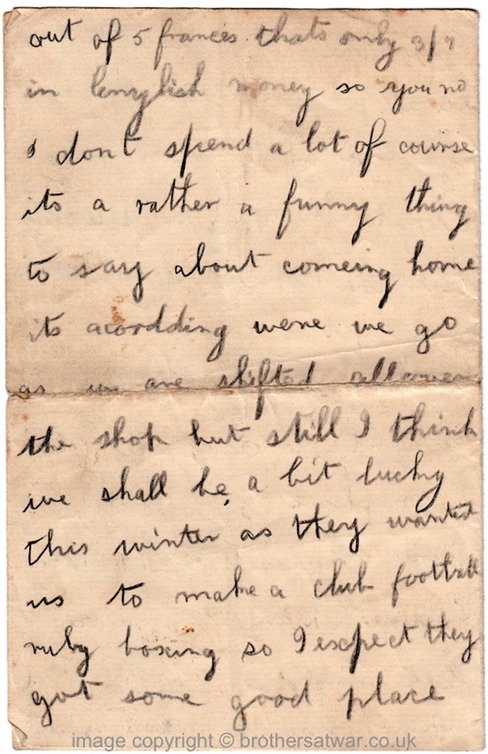 out of 5 francs thats only 3/9
in Icnylish money so you no
I dont spend a lot of course
its a rather a funny thing
to say about comeing home
its acordding were we go
as we are shifted allover
the shop but still I think
we shall be a bit lucky
this winter as they wanted
us to make a club football
ruby boxing so I exspect they
got some good place
image copyright © brothersatwar.co.uk